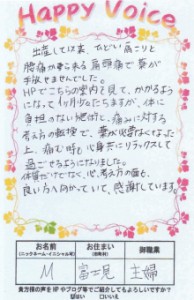 Happy Voice
出産して以来、ひどい肩こりと
腰痛が常にある肩頭痛で薬が
手放せませんでした。
HPでこちらの室内を見て、かかるよう
になって1ヶ月少したちますが、体に
負担のない施術と、痛みに対する
考え方の転換で、薬が必要なくなった
上、痛む時も心身共にリラックスして
過ごせるようになりました。
体質だけでなく、心、考え方の面も、
良い方へ向かっていて、感謝しています。
お名前
お住まい
御職業
(ニックネーム・イニシャル可)
(市町村)
M
富士見
主婦
貴方様の声を HP やブログ等でご紹介してもよろしいですか?
はい
いいえ